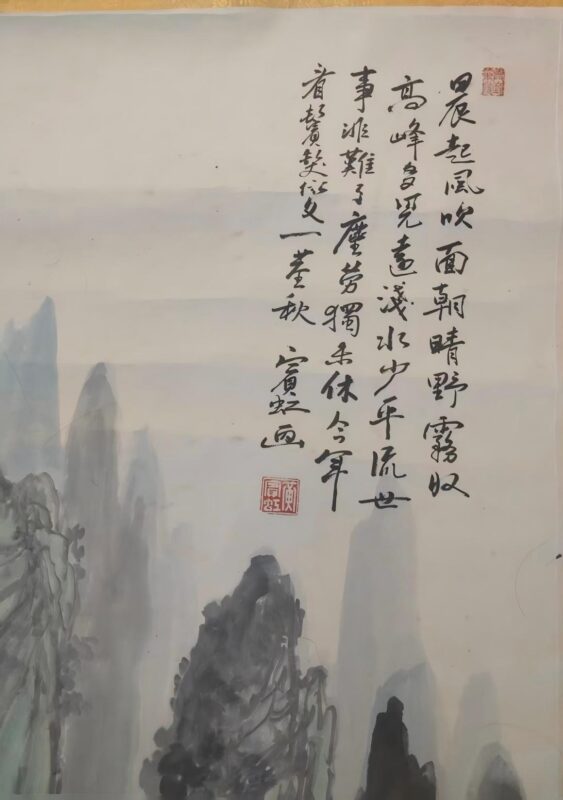 晨起風吹面朝晴野霧收
高峰多遠淺水少平流世
事非難了塵勞獨未休今年
看鬢髮似又一莖秋 賓虹画
黄賓虹